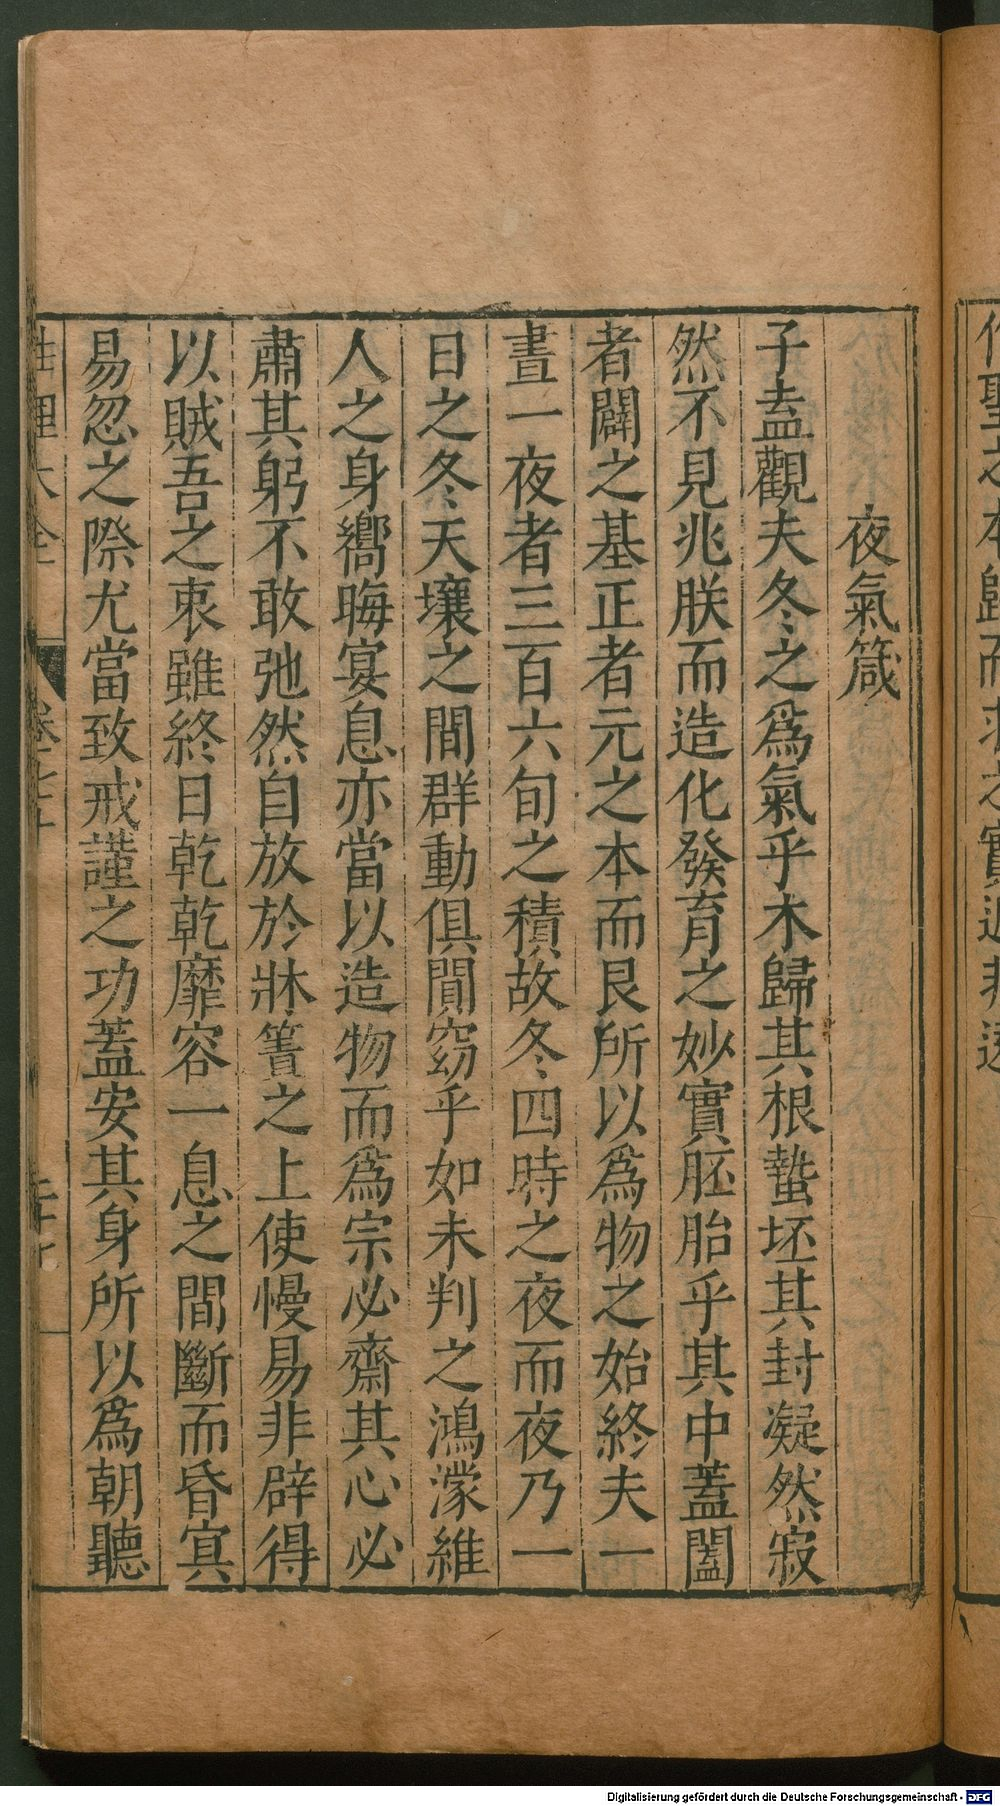 夜氣箴
子盍觀夫冬之爲氣乎木歸其根蟄坯其封凝然寂
然不見兆朕而造化發育之妙實胚胎乎其中蓋闔
者闢之基正者元之本而艮所以爲物之始終夫一
晝一夜者三百六旬之積故冬四時之夜而夜乃一
日之冬天壤之間群動俱閴窈乎如未判之鴻濛維
人之身嚮晦宴息亦當以造物而爲宗必齋其心必
肅其躬不敢弛然自放於牀簀之上使慢易非辟得
以賊吾之衷雖終日乾乾靡容一息之間斷而昏㝠
易忽之際尤當致戒謹之功蓋安其身所以爲朝聽
性理大全
卷之七十
Digitalisierung gefördert durch die Deutsche Forschungsgemeinschaft - DFG